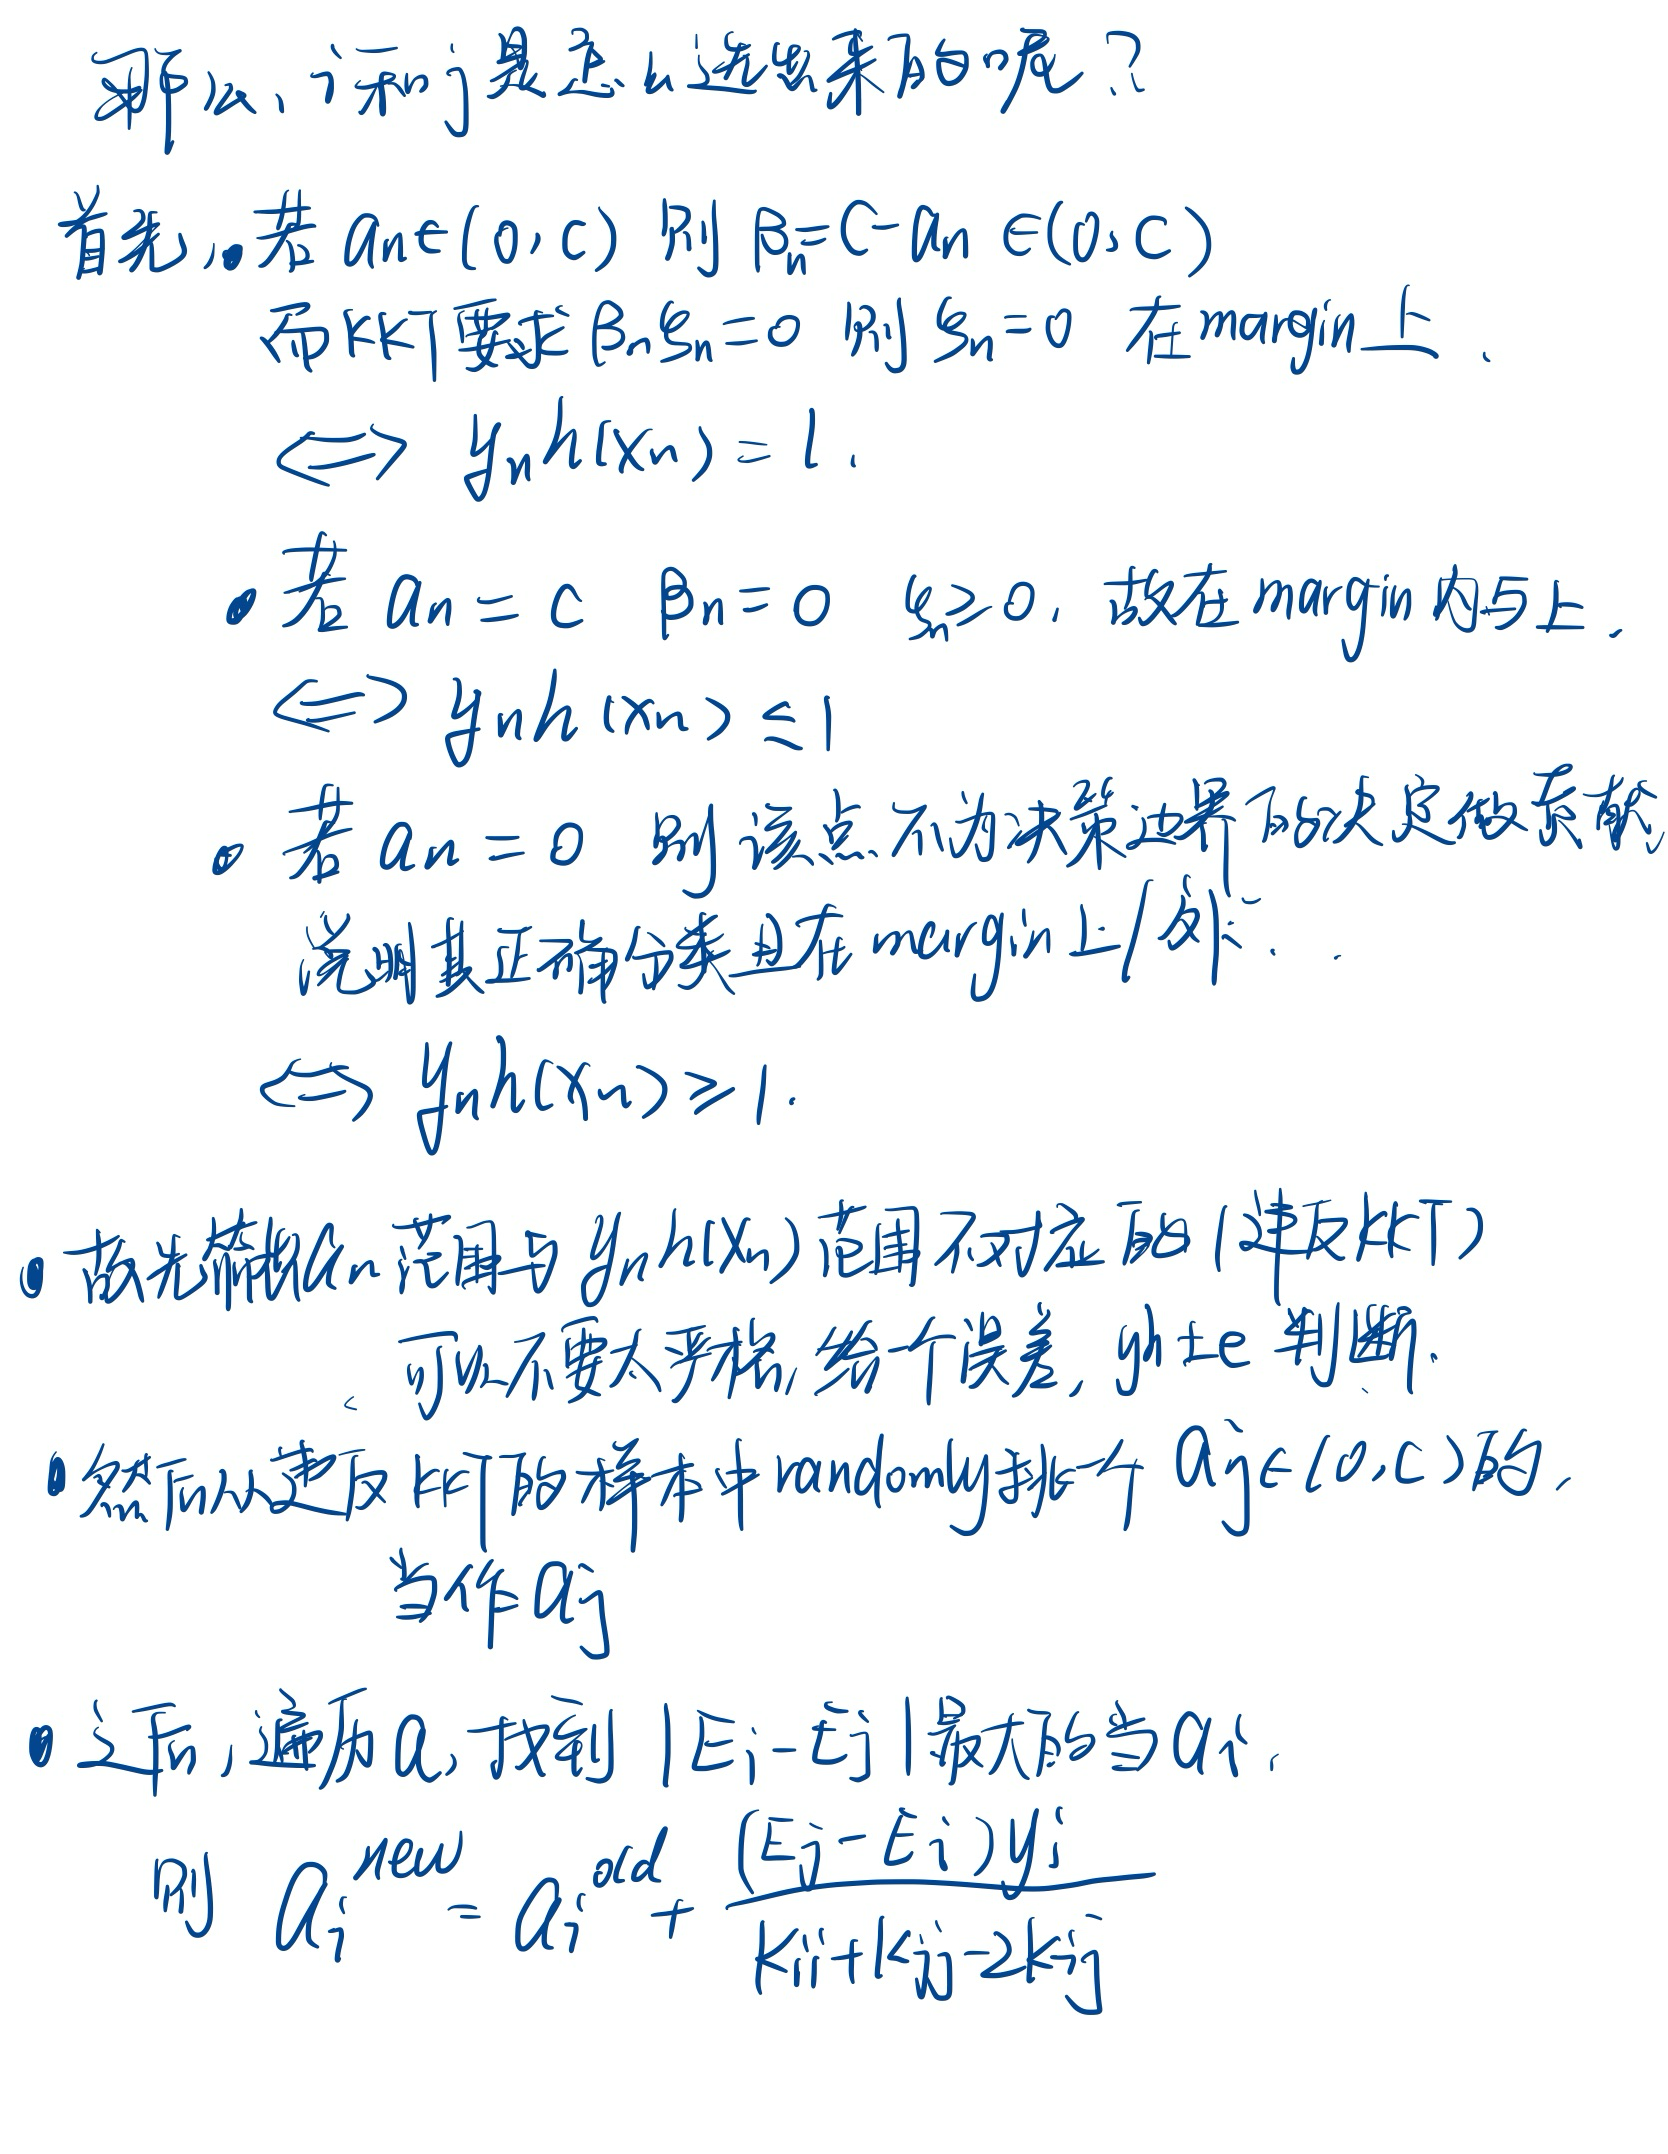 那么、i和j是怎么选出来的呢？
首先,• 若 an∈(0,C) 则 βn=C-an ∈(0,C)
而KKT要求βnξn=0 则 ξn=0 在margin上、
⟺ ynh(xn)=1.
• 若 an = C βn=0 ξn≥0. 故在margin内与上.
⟺ ynh(xn) ≤ 1
• 若 an = 0 则该点不为决策边界的决定做贡献,
说明其正确分类且在margin上/外.
⟺ ynh(xn) ≥ 1.
• 故先筛掉an范围与ynh(xn)范围不对应的(违反KKT)
可以不要太严格, 给个误差, yh±e 判断.
• 然后从违反KKT的样本中randomly挑一个 aj∈(0,C)的,
当作aj
• 之后, 遍历a, 找到 |Ei-Ej|最大的当ai.
则 ai^new = ai^old + (Ej-Ei)yi / (Kii+Kjj-2Kij)